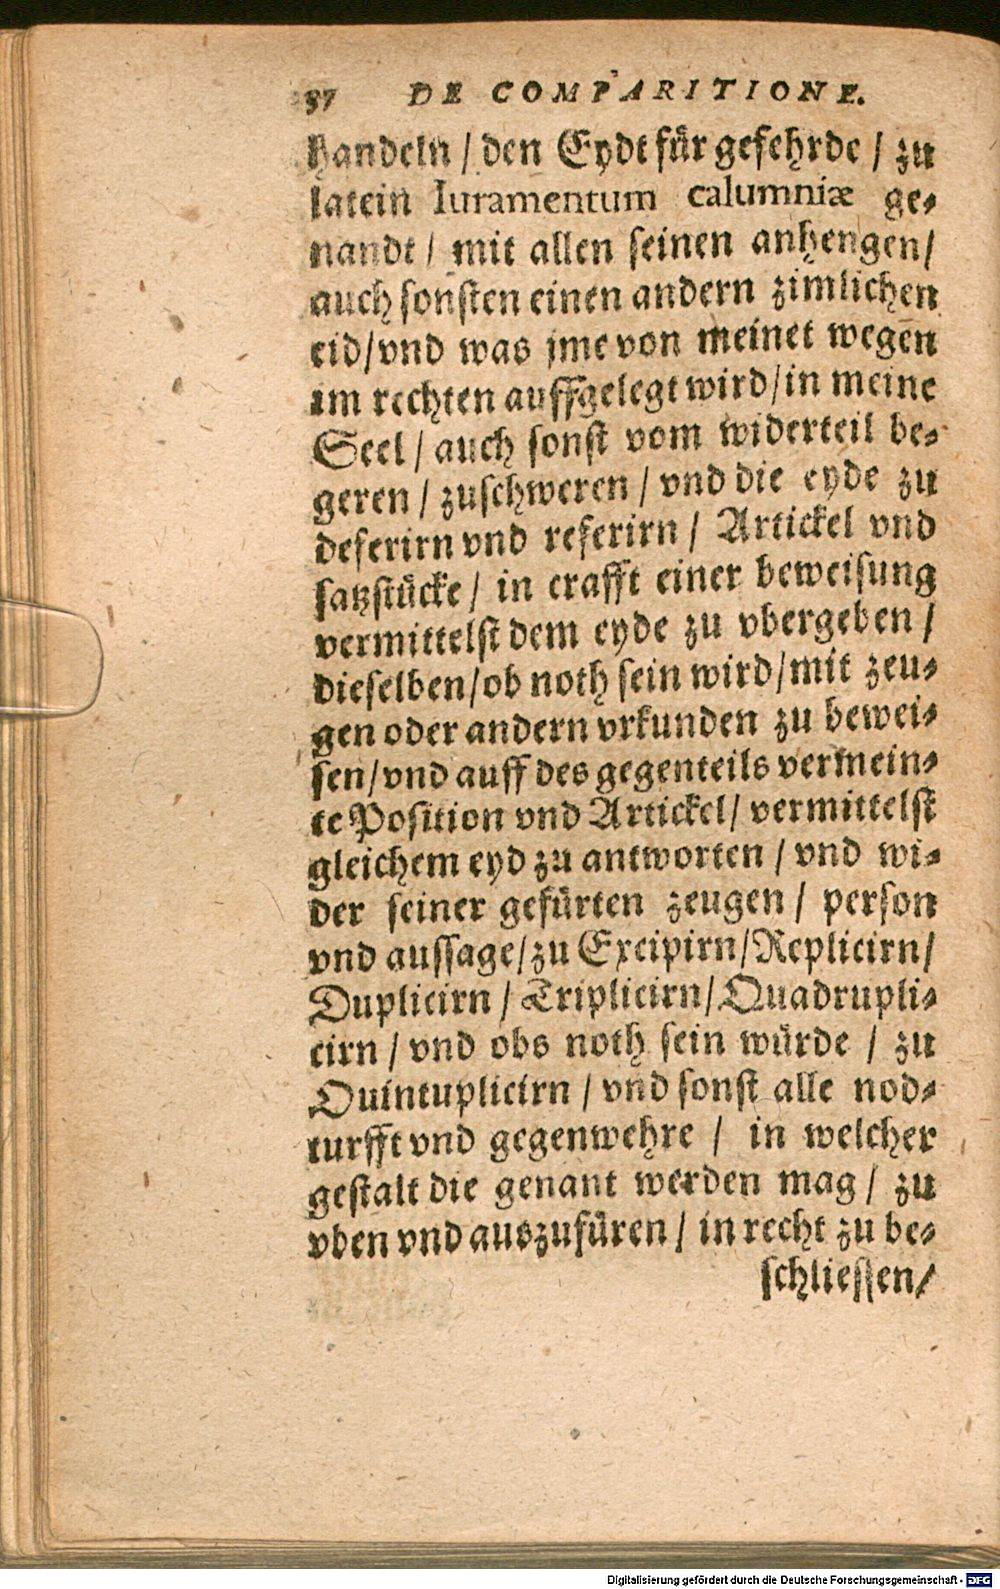 37 DE COMPARITIONE.
handeln / den Eydt für gefehrde / zu
latein Iuramentum calumniæ ge-
nandt / mit allen seinen anhengen/
auch sonsten einen andern zimlichen
eid/vnd was jme von meinet wegen
im rechten auffgelegt wird/in meine
Seel / auch sonst vom widerteil be-
geren / zuschweren / vnd die eyde zu
deferirn vnd referirn / Artickel vnd
satzstücke / in crafft einer beweisung
vermittelst dem eyde zu vbergeben /
dieselben/ob noth sein wird/mit zeu-
gen oder andern vrkunden zu bewei-
sen/vnd auff des gegenteils vermein-
te Position vnd Artickel/ vermittelst
gleichem eyd zu antworten / vnd wi-
der seiner gefürten zeugen / person
vnd aussage/zu Excipirn/Replicirn/
Duplicirn / Triplicirn/Quadrupli-
cirn / vnd obs noth sein würde / zu
Quintuplicirn / vnd sonst alle nod-
turfft vnd gegenwehre / in welcher
gestalt die genant werden mag / zu
vben vnd auszufüren / in recht zu be-
schliessen/
Digitalisierung gefördert durch die Deutsche Forschungsgemeinschaft - DFG